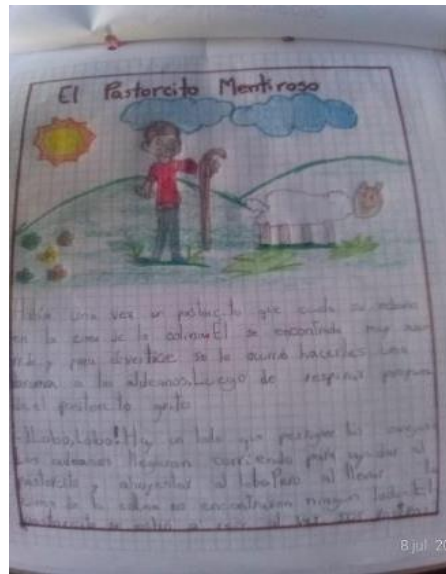 El Pastorcito Mentiroso
Había una vez un pastorcito que cuida su rebaño
en la cima de la colina. El se encontraba muy
y para divertice se le ocurrió hacerles una
broma a los aldeanos. Luego de respirar
el pastorcito grito
-¡Lobo, Lobo! Hay un lobo que persigue las ovejas
Los aldeanos llegaron corriendo para ayudar al
pastorcito y ahuyentar al lobo Pero al llegar
cima de la colina no encontraron ningun lobo. El
8 jul 20